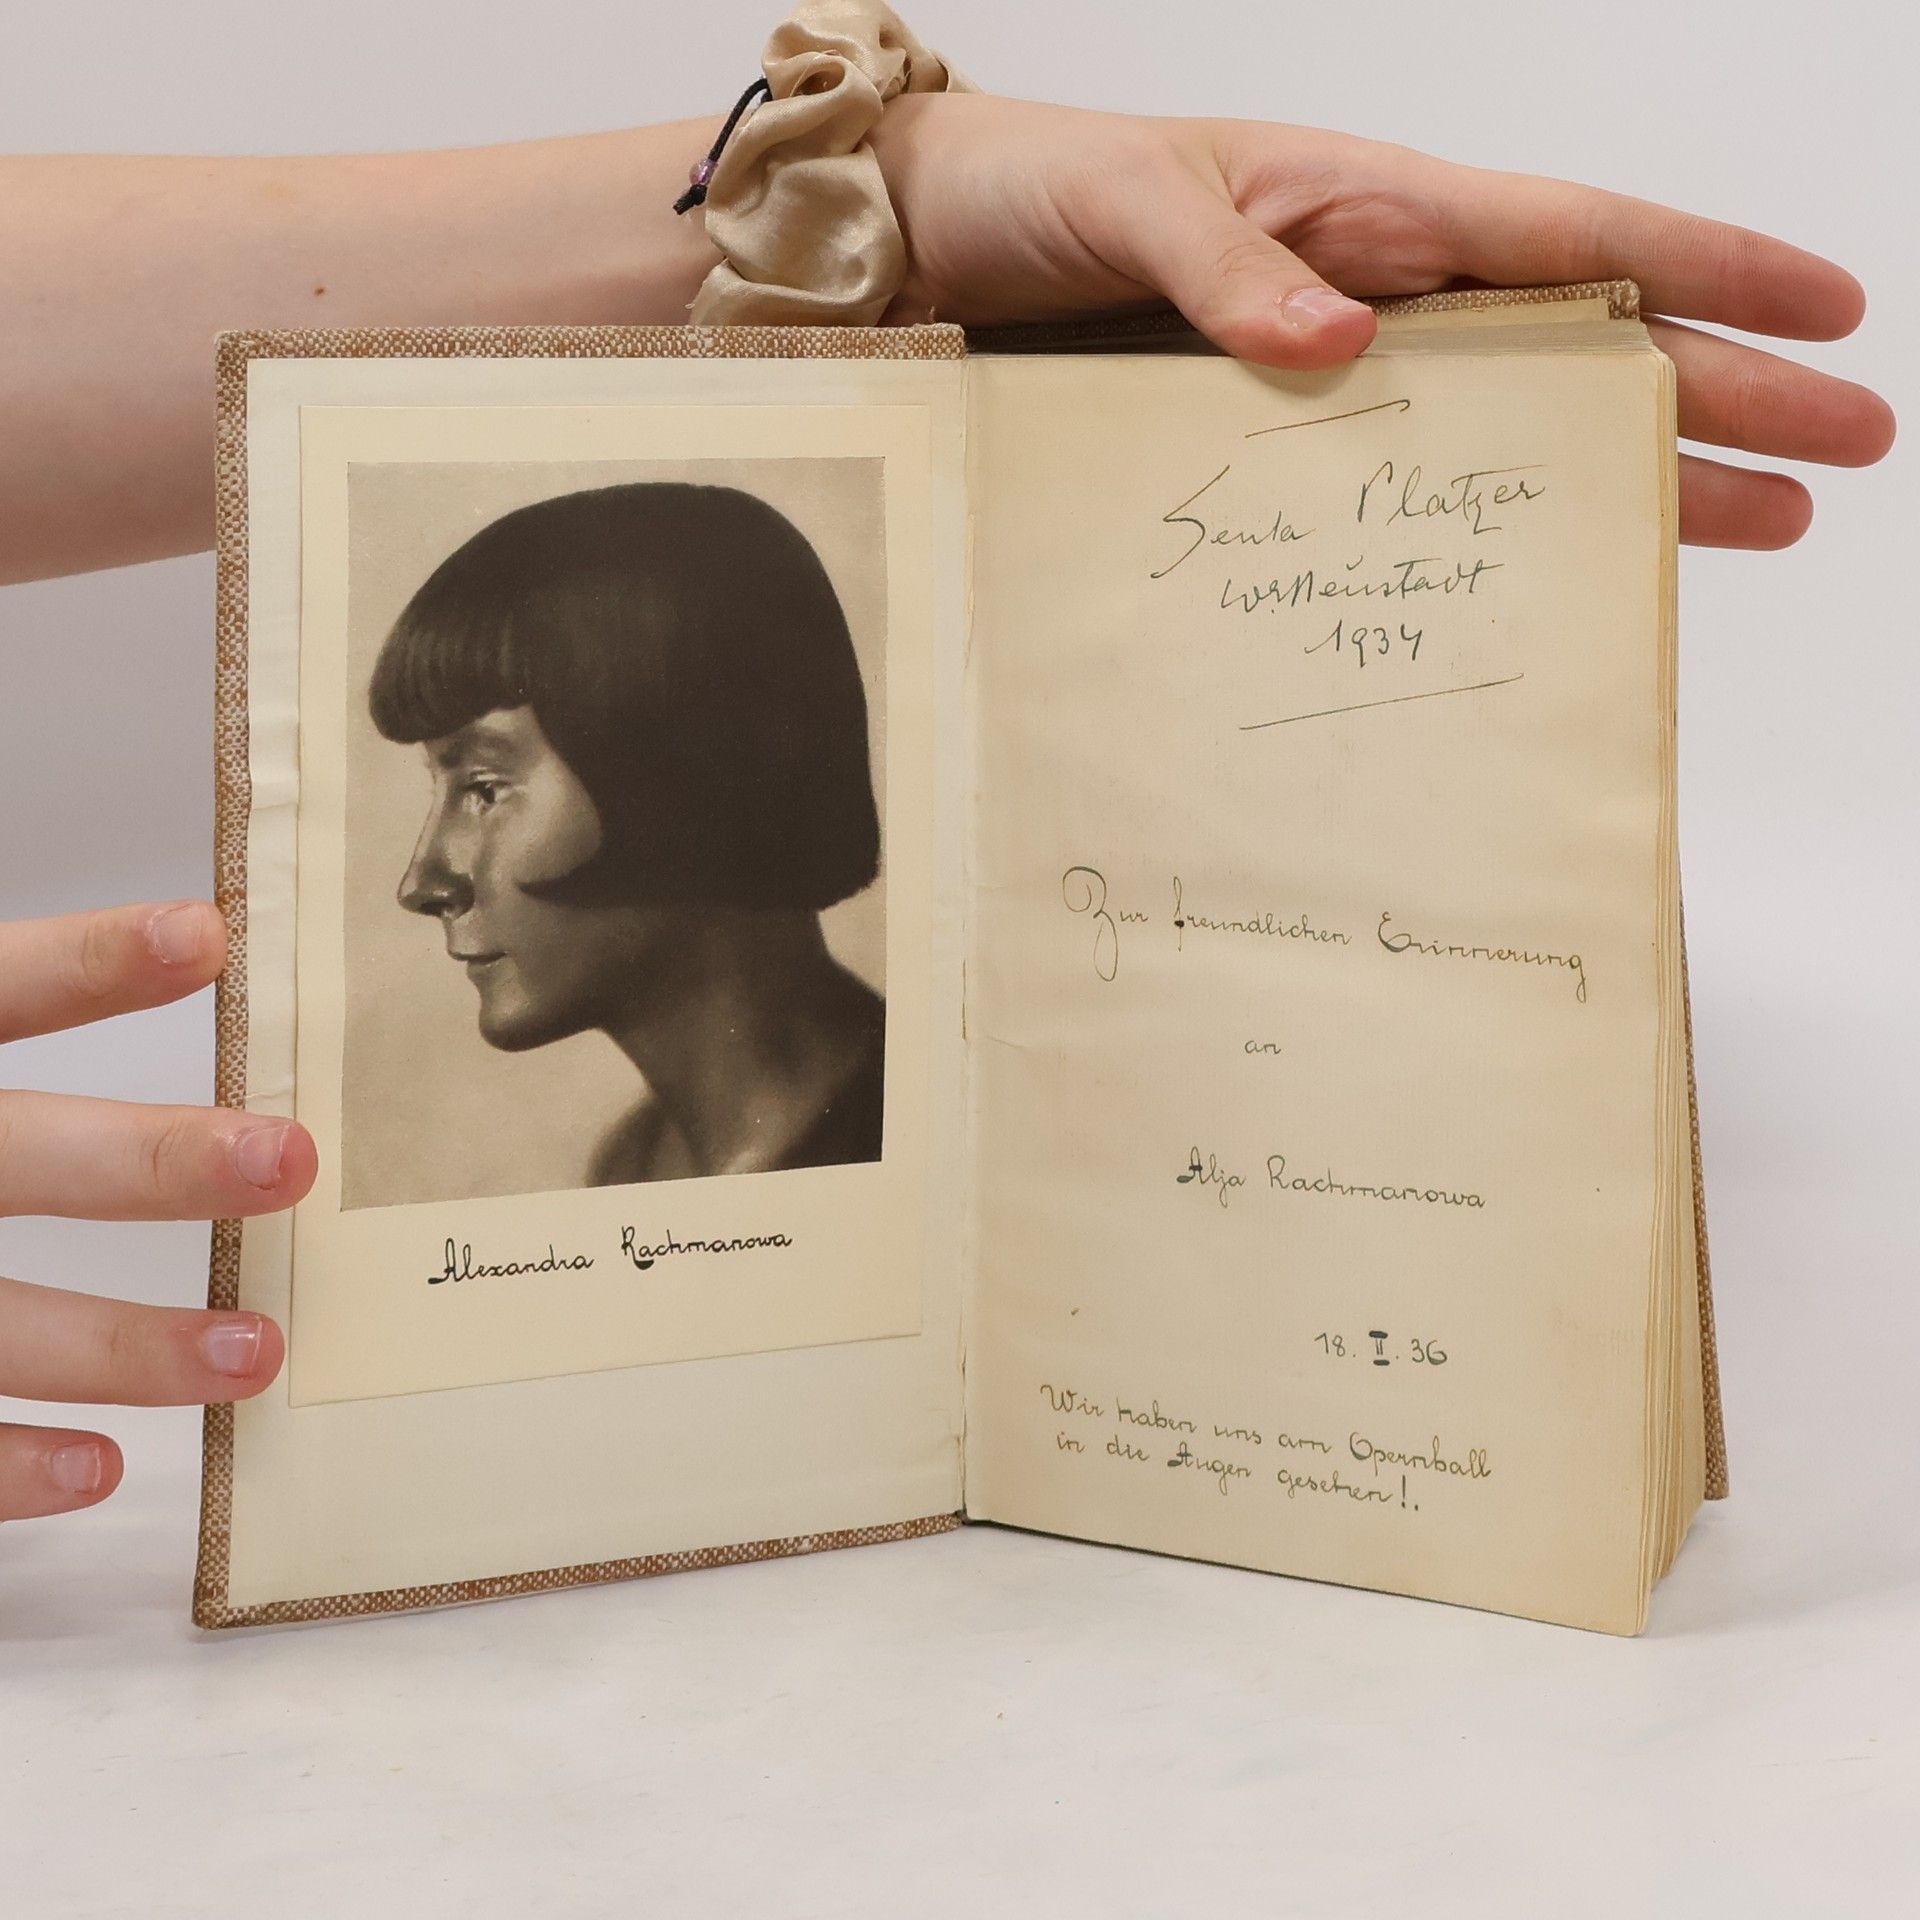 Alexandra Rachmanowa
Senta Platzer
Wr. Neustadt
1934
Zur freundlichen Erinnerung
an
Alja Rachmanowa
18. II. 36
Wir haben uns am Opernball
in die Augen gesehen!.